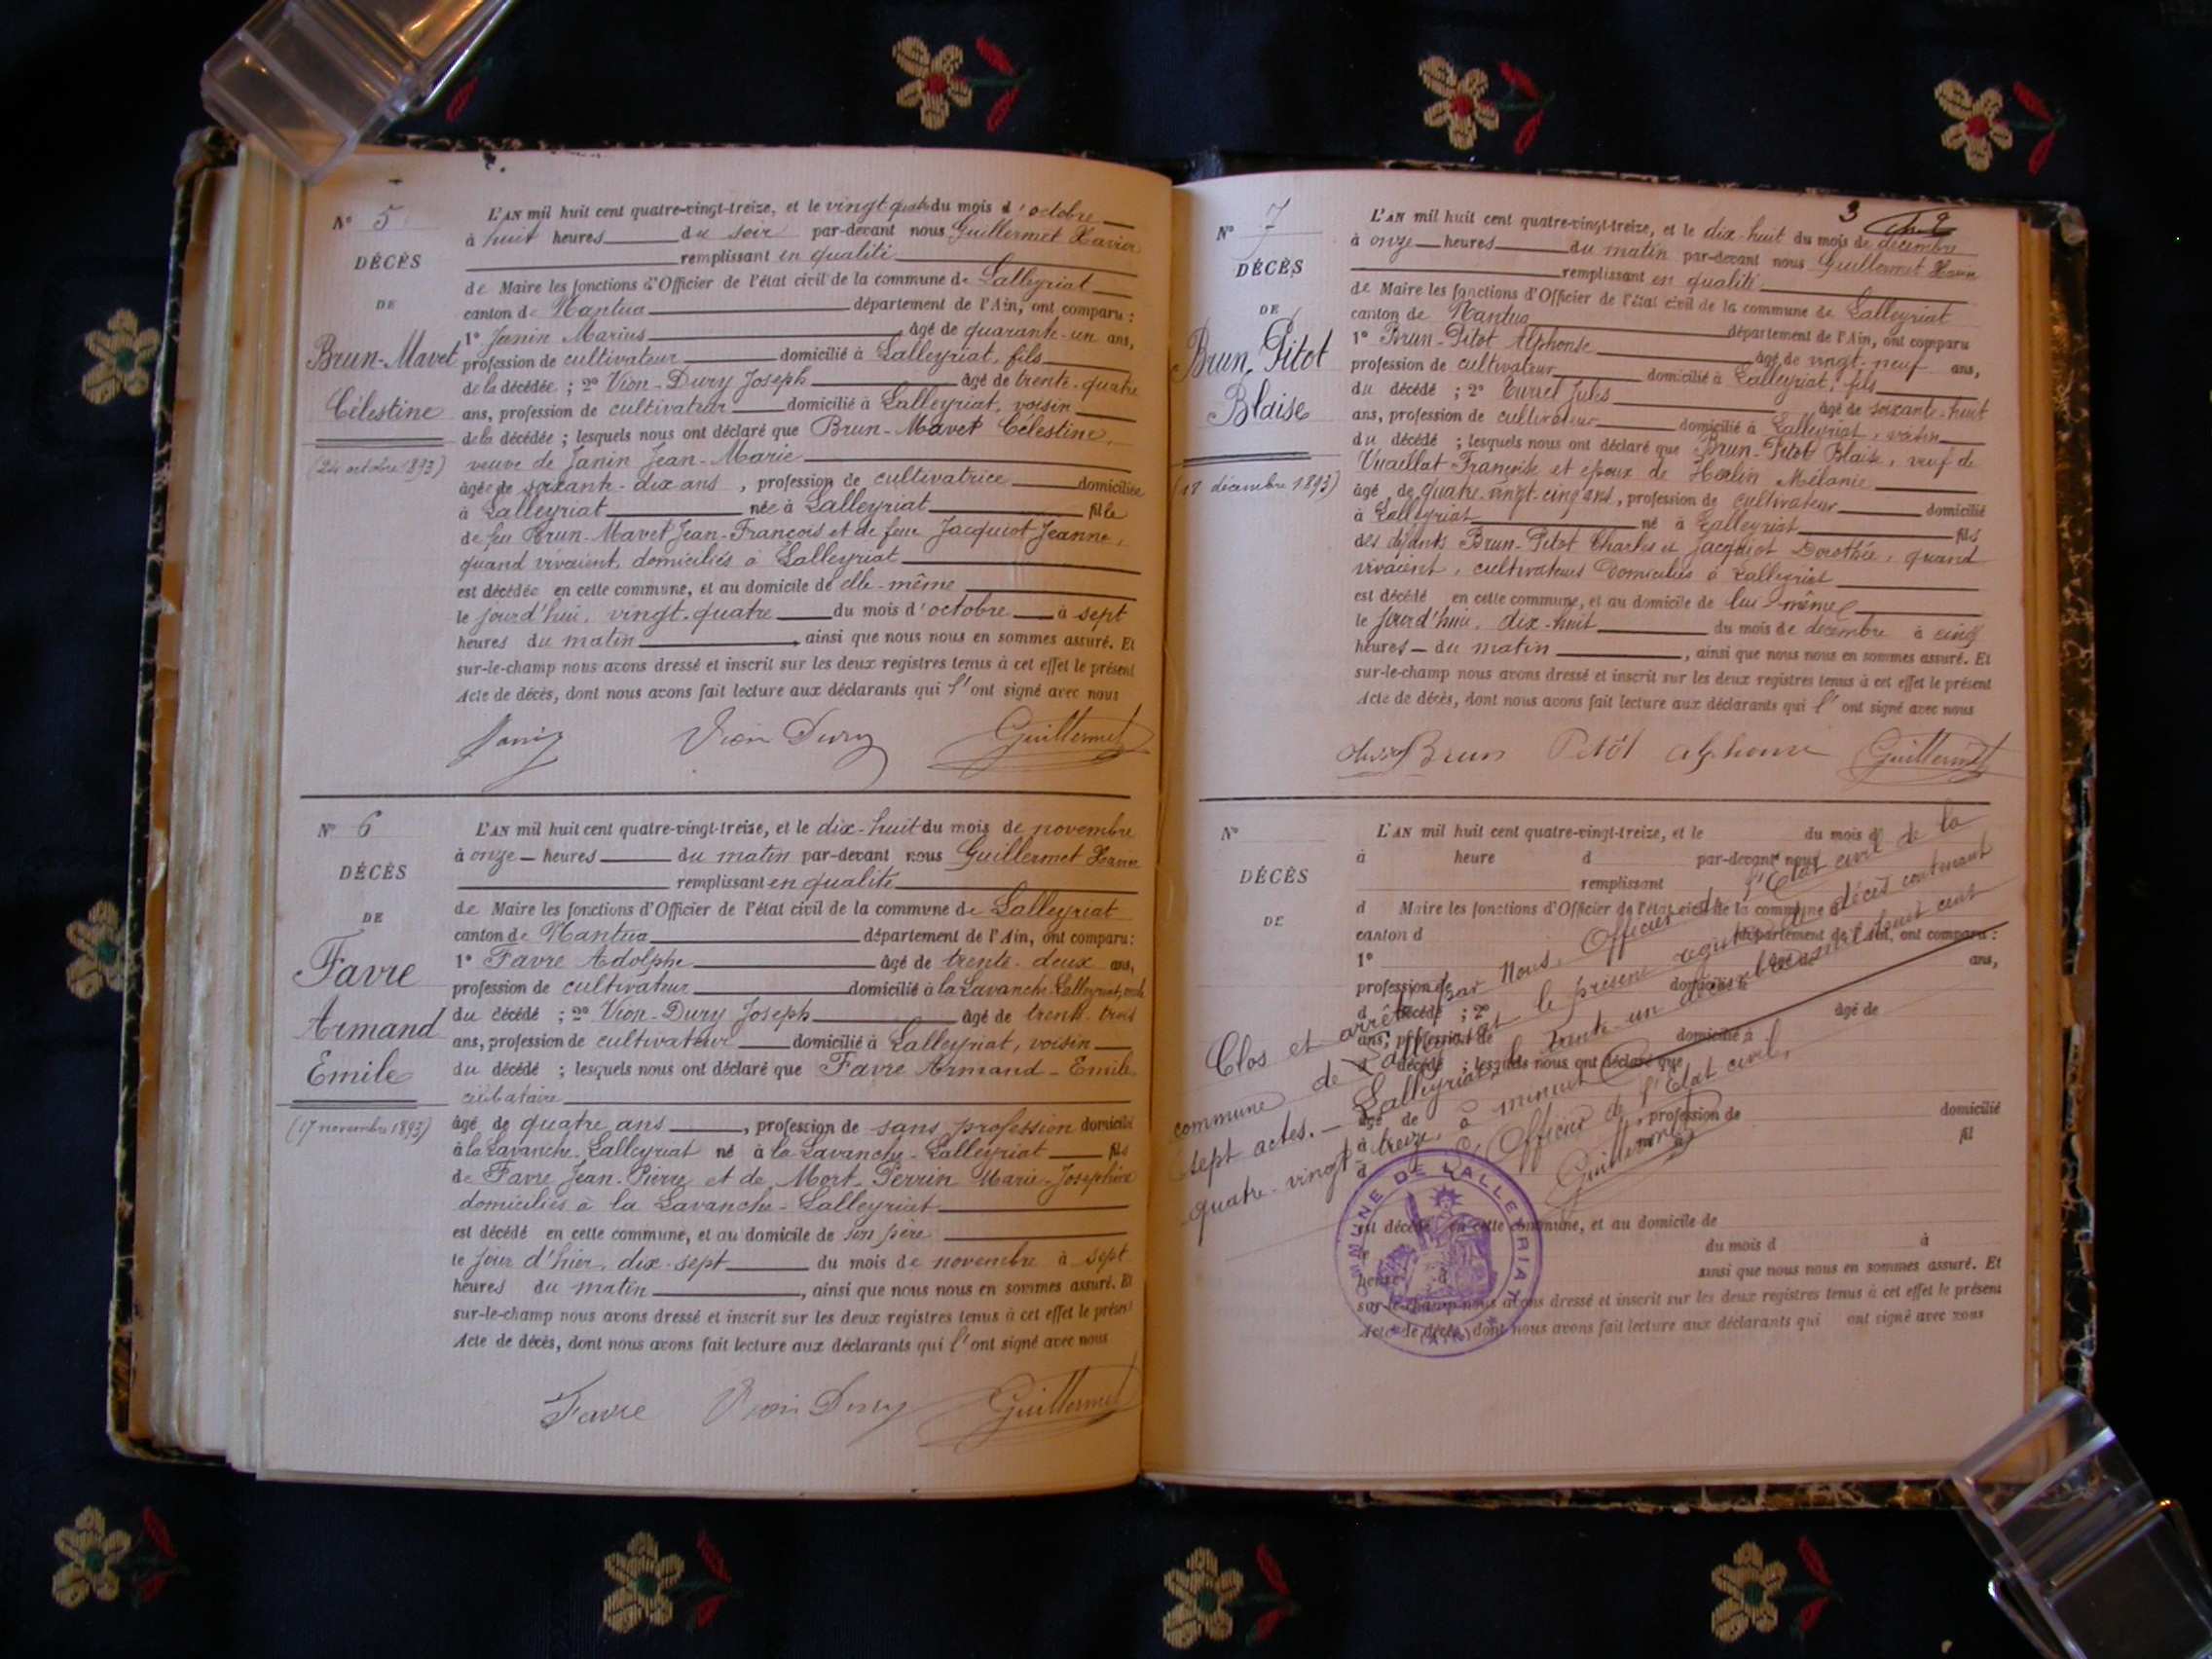 N° 5
DÉCÈS
DE
Brun-Mavet
Célestine
(24 octobre 1893)
L'AN mil huit cent quatre-vingt-treize, et le vingt quatre du mois d'octobre
à huit heures du soir par-devant nous Guillermet Xavier
remplissant en qualité
de Maire les fonctions d'Officier de l'état civil de la commune de Lalleyriat
canton de Nantua département de l'Ain, ont comparu :
1° Janin Marius âgé de quarante-un ans,
profession de cultivateur domicilié à Lalleyriat, fils
de la décédée ; 2° Vion-Dury Joseph âgé de trente-quatre
ans, profession de cultivateur domicilié à Lalleyriat, voisin
de la décédée ; lesquels nous ont déclaré que Brun-Mavet Célestine,
veuve de Janin Jean-Marie
âgée de soixante-dix ans, profession de cultivatrice domiciliée
à Lalleyriat née à Lalleyriat fille
de feu Brun-Mavet Jean-François et de feue Jacquiot Jeanne,
quand vivaient, domiciliés à Lalleyriat
est décédée en cette commune, et au domicile de elle-même
le jourd'hui, vingt-quatre du mois d'octobre à sept
heures du matin, ainsi que nous nous en sommes assuré. Et
sur-le-champ nous avons dressé et inscrit sur les deux registres tenus à cet effet le présent
Acte de décès, dont nous avons fait lecture aux déclarants qui l'ont signé avec nous
Janin Vion Dury Guillermet
N° 6
DÉCÈS
DE
Favre
Armand
Emile
(17 novembre 1893)
L'AN mil huit cent quatre-vingt-treize, et le dix-huit du mois de novembre
à onze heures du matin par-devant nous Guillermet Xavier
remplissant en qualité
de Maire les fonctions d'Officier de l'état civil de la commune de Lalleyriat
canton de Nantua département de l'Ain, ont comparu :
1° Favre Adolphe âgé de trente-deux ans,
profession de cultivateur domicilié à la Lavanche Lalleyriat,
du décédé ; 2° Vion-Dury Joseph âgé de trente-trois
ans, profession de cultivateur domicilié à Lalleyriat, voisin
du décédé ; lesquels nous ont déclaré que Favre Armand-Emile
célibataire
âgé de quatre ans, profession de sans profession domicilié
à la Lavanche-Lalleyriat né à la Lavanche-Lalleyriat fils
de Favre Jean-Pierre et de Mort-Perrin Marie-Joséphine
domiciliés à la Lavanche-Lalleyriat
est décédé en cette commune, et au domicile de son père
le jour d'hier, dix-sept du mois de novembre à sept
heures du matin, ainsi que nous nous en sommes assuré. Et
sur-le-champ nous avons dressé et inscrit sur les deux registres tenus à cet effet le présent
Acte de décès, dont nous avons fait lecture aux déclarants qui l'ont signé avec nous
Favre Vion Dury Guillermet
3
N° 7
DÉCÈS
DE
Brun-Pitot
Blaise
(18 décembre 1893)
L'AN mil huit cent quatre-vingt-treize, et le dix-huit du mois de décembre
à onze heures du matin par-devant nous Guillermet Xavier
remplissant en qualité
de Maire les fonctions d'Officier de l'état civil de la commune de Lalleyriat
canton de Nantua département de l'Ain, ont comparu
1° Brun-Pitot Alphonse âgé de vingt-neuf ans,
profession de cultivateur domicilié à Lalleyriat, fils
du décédé ; 2° Jules âgé de soixante-huit
ans, profession de cultivateur domicilié à Lalleyriat, voisin
du décédé ; lesquels nous ont déclaré que Brun-Pitot Blaise, veuf de
Vuaillat Françoise et époux de Mélanie
âgé de quatre-vingt-cinq ans, profession de cultivateur domicilié
à Lalleyriat né à Lalleyriat fils
des défunts Brun-Pitot Charles et Jacquiot Dorothée, quand
vivaient, cultivateurs domiciliés à Lalleyriat
est décédé en cette commune, et au domicile de lui-même
le jourd'hui, dix-huit du mois de décembre à cinq
heures du matin, ainsi que nous nous en sommes assuré. Et
sur-le-champ nous avons dressé et inscrit sur les deux registres tenus à cet effet le présent
Acte de décès, dont nous avons fait lecture aux déclarants qui l'ont signé avec nous
Brun Pitot alphonse Guillermet
N°
DÉCÈS
DE
L'AN mil huit cent quatre-vingt-treize, et le du mois d
à heure d par-devant nous
remplissant
d Maire les fonctions d'Officier de l'état civil de la commune d
canton d département de l'Ain, ont comparu :
1° âgé de ans,
profession de domicilié à
d décédé ; 2° âgé de
ans, profession de domicilié à
d décédé ; lesquels nous ont déclaré que
âgé de , profession de domicilié
à né à fil
d
est décédé en cette commune, et au domicile de
le du mois d à
heure d ainsi que nous nous en sommes assuré. Et
sur-le-champ nous avons dressé et inscrit sur les deux registres tenus à cet effet le présent
Acte de décès, dont nous avons fait lecture aux déclarants qui ont signé avec nous
Clos et arrêté par Nous, Officier de l'Etat civil de la
commune de Lalleyriat le présent registre de décès contenant
sept actes. — Lalleyriat, le trente-un décembre mil huit cent
quatre-vingt-treize, à minuit
L'Officier de l'Etat civil,
Guillermet
COMMUNE DE LALLEYRIAT
(AIN)